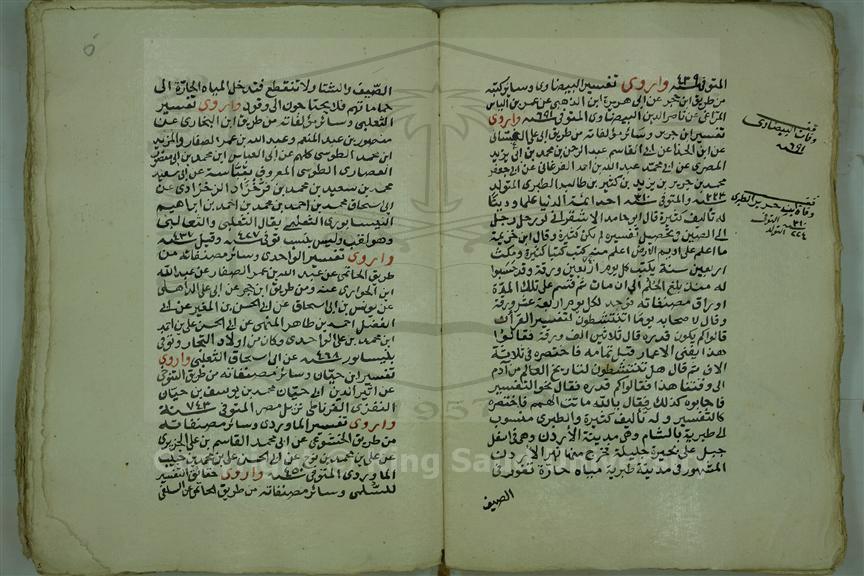 المتوفى سنة ٤٣٩ واروي تفسير البيضاوي وسائر كتبه
من طريق ابن حجر عن ابي هريرة ابن الذهبي عن عمر بن الياس
المراغي عن ناصر الدين البيضاوي المتوفى سنة ٦٩١ واروي
تفسير ابن جرير وسائر مؤلفاته من طريق ابي علي
عن ابي اسم عبد الرحمن بن محمد بن ابي يزيد
المصري عن ابي محمد عبد الله بن احمد الفرغاني عن ابي جعفر
محمد بن جرير بن يزيد بن كثير بن غالب الطبري المتولد
سنة ٢٢٣ والمتوفى سنة ٣١٠ احد ائمة الدنيا علما ودينا
له تآليف كثيرة قال ابو حامد الاسفرايني لو رحل رجل
الى الصين ويحصل تفسيره لم يكن كثيرا وقال ابن خزيمة
ما اعلم على اديم الارض اعلم منه كتب كتبا كثيرة ومكث
اربعين سنة يكتب كل يوم اربعين ورقة وقد حسبوا
له منذ بلغ الحلم الى ان مات ثم قسم على تلك المدة
اوراق مصنفاته فوجد لكل يوم اربعة عشر ورقة
وقال لاصحابه يوما اتنشطون لتفسير القرآن
قالوا كم يكون قدره قال ثلاثين الف ورقة فقالوا
هذا يفني الاعمار قبل تمامه فاختصره في ثلاثة
الاف ثم قال هل تنشطون لتاريخ العالم من آدم
الى وقتنا هذا فقالوا كم قدره فقال نحو التفسير
فاجابوه كذلك فقال بالله ماتت الهمم فاختصره
كالتفسير وله تآليف كثيرة والطبري منسوب
الى طبرية بالشام وهي مدينة الاردن وهي في اسفل
جبل على بحيرة جليلة يخرج منها نهر الاردن
المشهور في مدينة طبرية مياه حارة تفور في
الصيف
وفات البيضاوي
٦٩١ سنة
وفاة ابن جرير الطبري
٣١٠
التولد
٢٢٤
الصيف والشتا ولا تنقطع فتدخل المياه الحارة الى
حماماتهم فلا يحتاجون الى وقود واروي تفسير
الثعلبي وسائر مؤلفاته من طريق ابن البخاري عن
منصور بن عبد المنعم وعبد الله بن عمر الصفار والمؤيد
ابن محمد الطوسي كلهم عن ابي العباس ابن محمد بن ابي
الطوسي المعروف بعباسة عن ابي سعيد
محمد بن سعيد بن محمد بن فرخزاد الزخزادي عن
ابي اسحاق محمد بن احمد بن محمد بن احمد بن ابراهيم
النيسابوري الثعلبي يقال الثعلبي والثعالبي
وهو لقب وليس بنسب توفى سنة ٤٢٧ وقيل سنة ٤٣٧
واروي تفسير الواحدي وسائر مصنفاته من
طريق الحاتمي عن عبد الله بن عمر الصفار عن عبد الله
ابن الحواري عنه ومن طريق ابن حجر عن ابي علي
عن يونس بن ابي اسحاق عن ابي الحسن بن المقير عن ابي
الفضل احمد بن طاهر الميهني عن ابي الحسن علي بن احمد
ابن محمد بن علي الواحدي وكان من اولاد التجار وتوفى
بنيسابور سنة ٤٦٨ عن ابي اسحاق الثعلبي واروي
تفسير ابن حيان وسائر مصنفاته من طريق
عن اثير الدين ابي حيان محمد بن يوسف بن حيان
النفزي الغرناطي نزيل مصر المتوفى سنة ٧٤٣
واروي تفسير الماوردي وسائر مصنفاته
من طريق عن ابي محمد القاسم بن علي الحريري
عن علي بن محمد بن عن ابي الحسن علي بن محمد بن حبيب
الماوردي المتوفى سنة ٤٥٠ واروي حقائق التفسير
للسلمي وسائر مصنفاته من طريق الحاتمي عن السلفي
1957
King Saud University